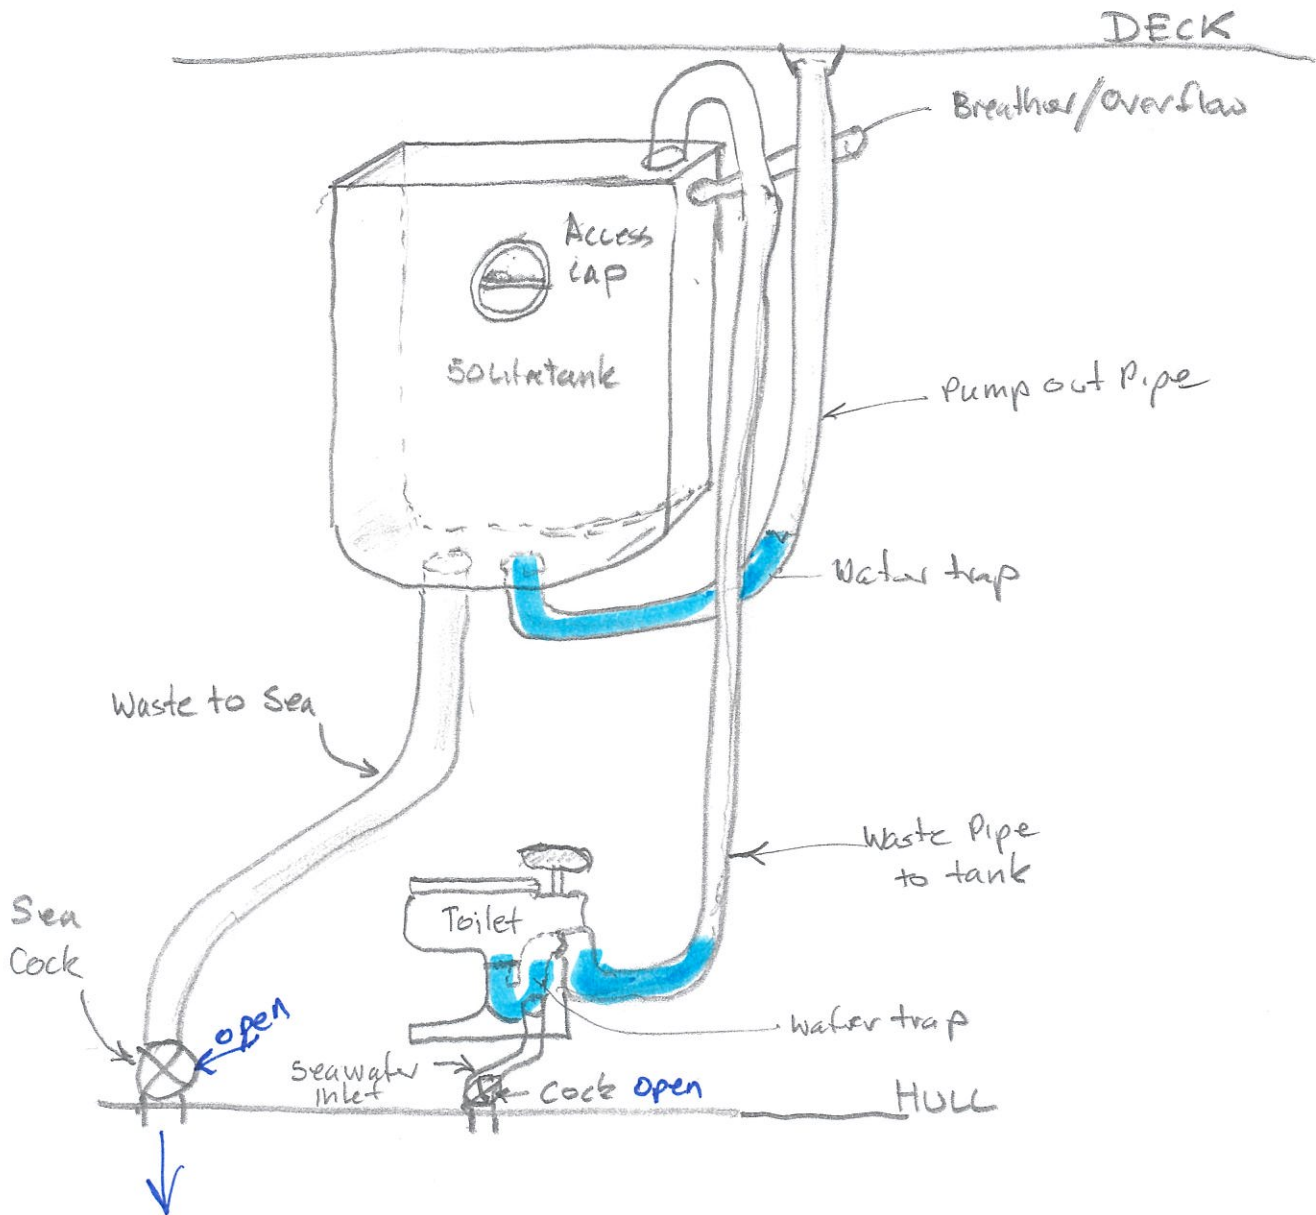 DECK
Breather/Overflow
Access
Cap
50 Litre tank
Pump out Pipe
Water trap
Waste to Sea
Waste Pipe
to tank
Toilet
Sea
Cock
open
water trap
Seawater
Inlet
Cock Open
HULL